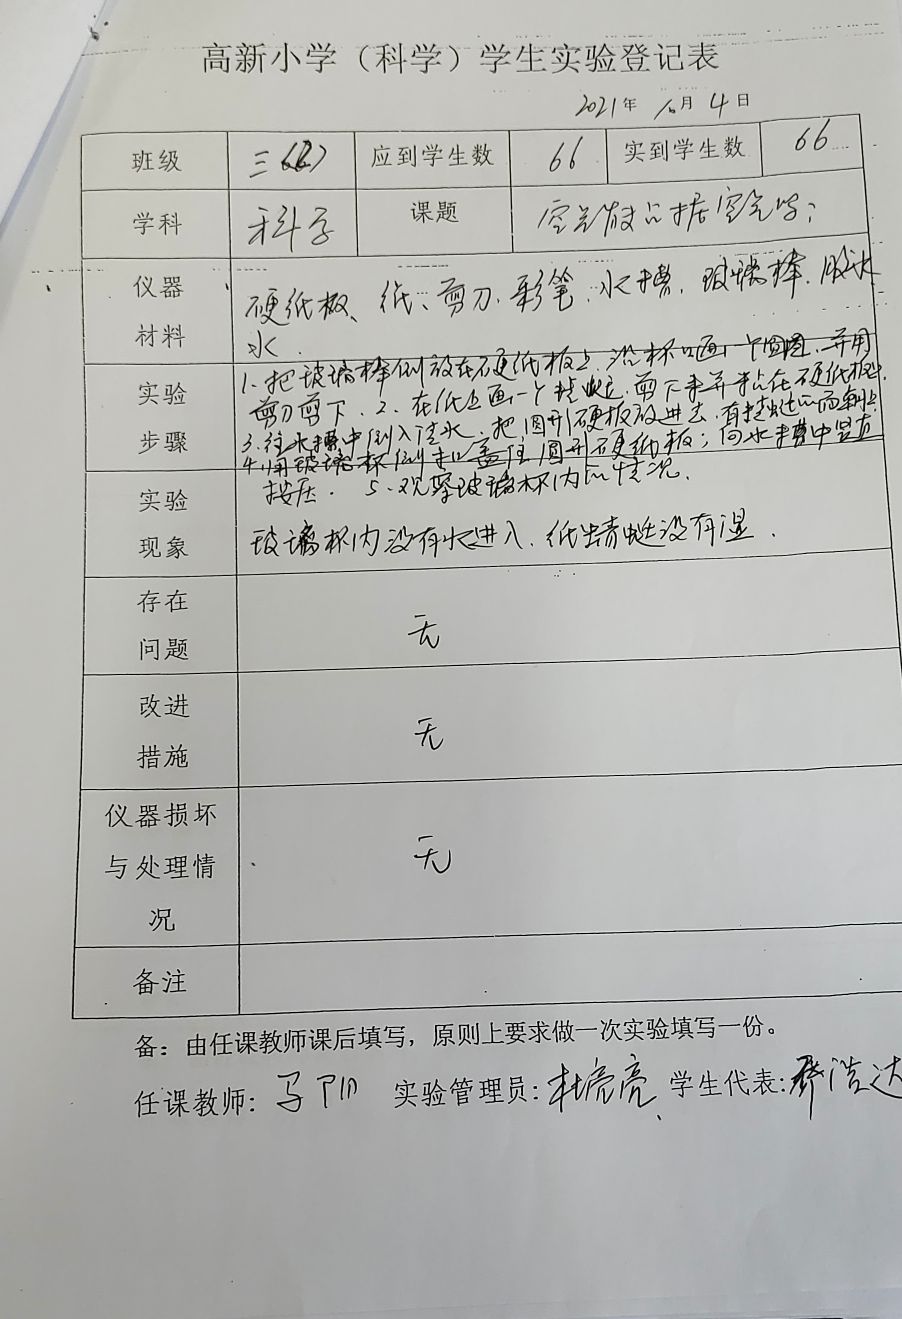 高新小学（科学）学生实验登记表
2021年 10月 4日
班级 三 应到学生数 66 实到学生数 66
学科 科学 课题 空气 占据空气吗；
仪器
材料
硬纸板、纸、剪刀、彩笔、水槽、玻璃棒、胶水
水．
实验
步骤
1、把玻璃棒倒放在硬纸板上 沿杯口画一个圆圈，并用
剪刀剪下．2、在纸上画一个 剪下来并粘在硬纸板上
3、往水槽中倒入清水，把圆形硬板放进去，有
4、用玻璃杯倒扣盖住圆形硬纸板；向水槽中竖直
按压．5、观察玻璃杯内的情况．
实验
现象
玻璃杯内没有水进入．纸蜻蜓没有湿．
存在
问题
无
改进
措施
无
仪器损坏
与处理情
况
无
备注
备：由任课教师课后填写，原则上要求做一次实验填写一份。
任课教师：马阳 实验管理员：杜亮亮 学生代表： 浩达